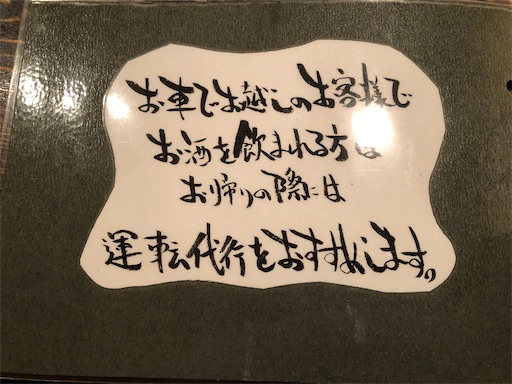 お車でお越しのお客様で
お酒を飲まれる方は
お帰りの際には
運転代行をおすすめします。